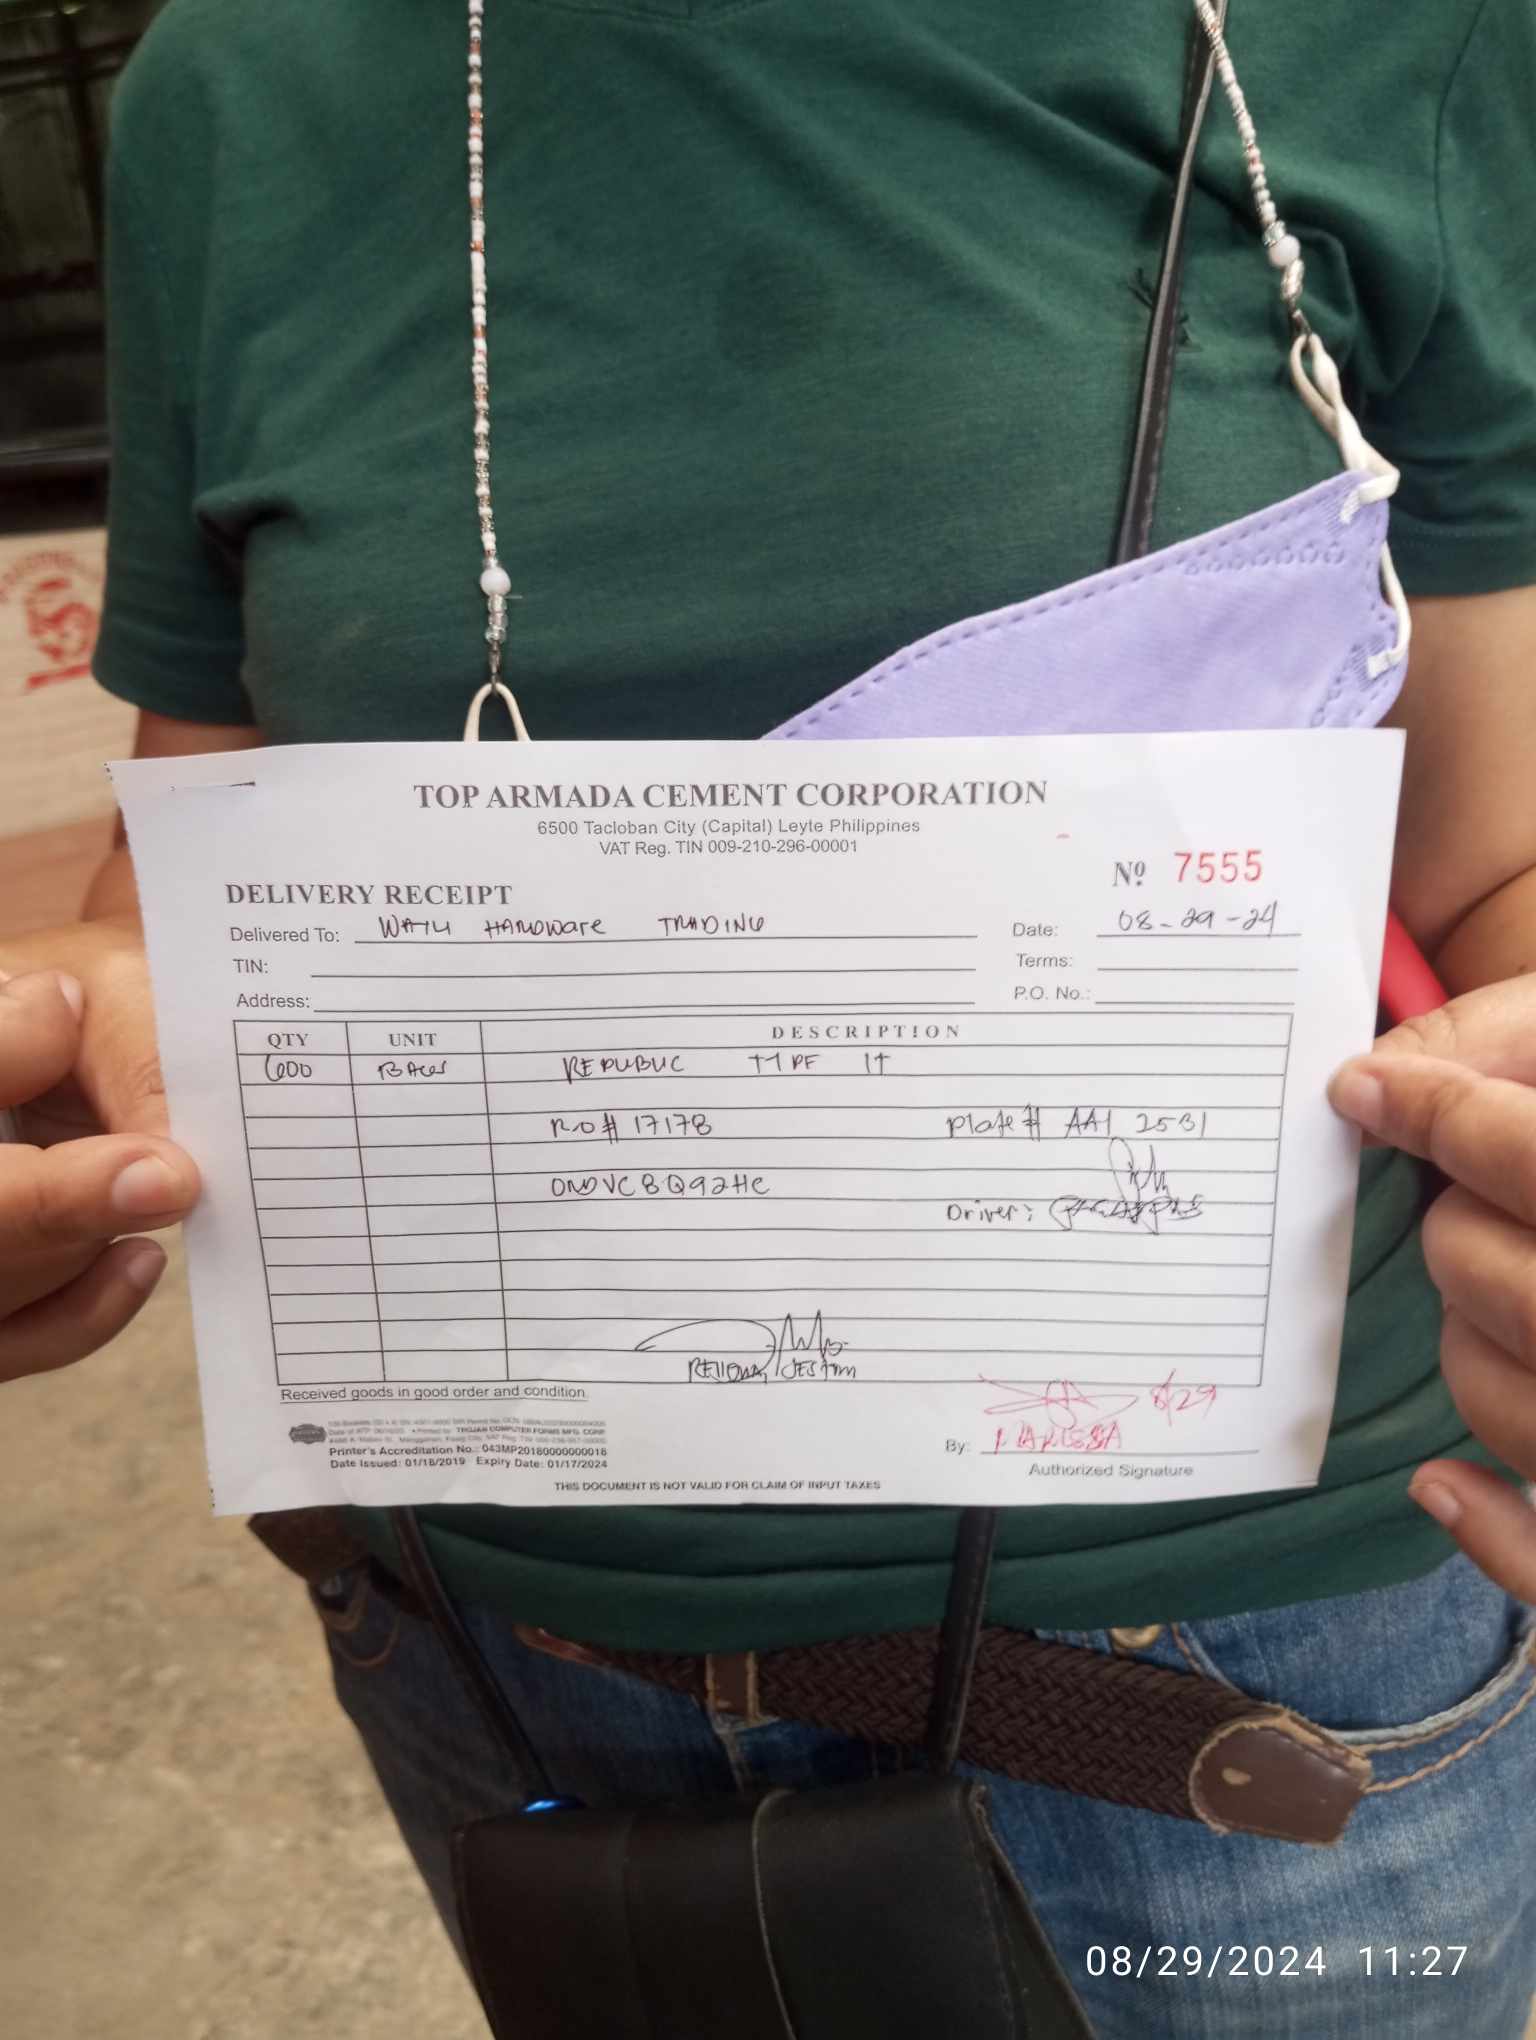 TOP ARMADA CEMENT CORPORATION
6500 Tacloban City (Capital) Leyte Philippines
VAT Reg. TIN 009-210-296-00001
Nº 7555
DELIVERY RECEIPT
Delivered To: HARDWARE TRADING
Date: 08-29-24
TIN:
Terms:
Address:
P.O. No.:
QTY UNIT DESCRIPTION
600 BAGS REPUBLIC TYPE 1T
R.O# 17178 Plate # AAI 2531
ONDVC8Q92HC
Driver:
Received goods in good order and condition.
8/29
By:
Authorized Signature
TROJAN COMPUTER FORMS MFG. CORP.
Printer's Accreditation No.: 043MP20180000000018
Date Issued: 01/18/2019 Expiry Date: 01/17/2024
THIS DOCUMENT IS NOT VALID FOR CLAIM OF INPUT TAXES
08/29/2024 11:27